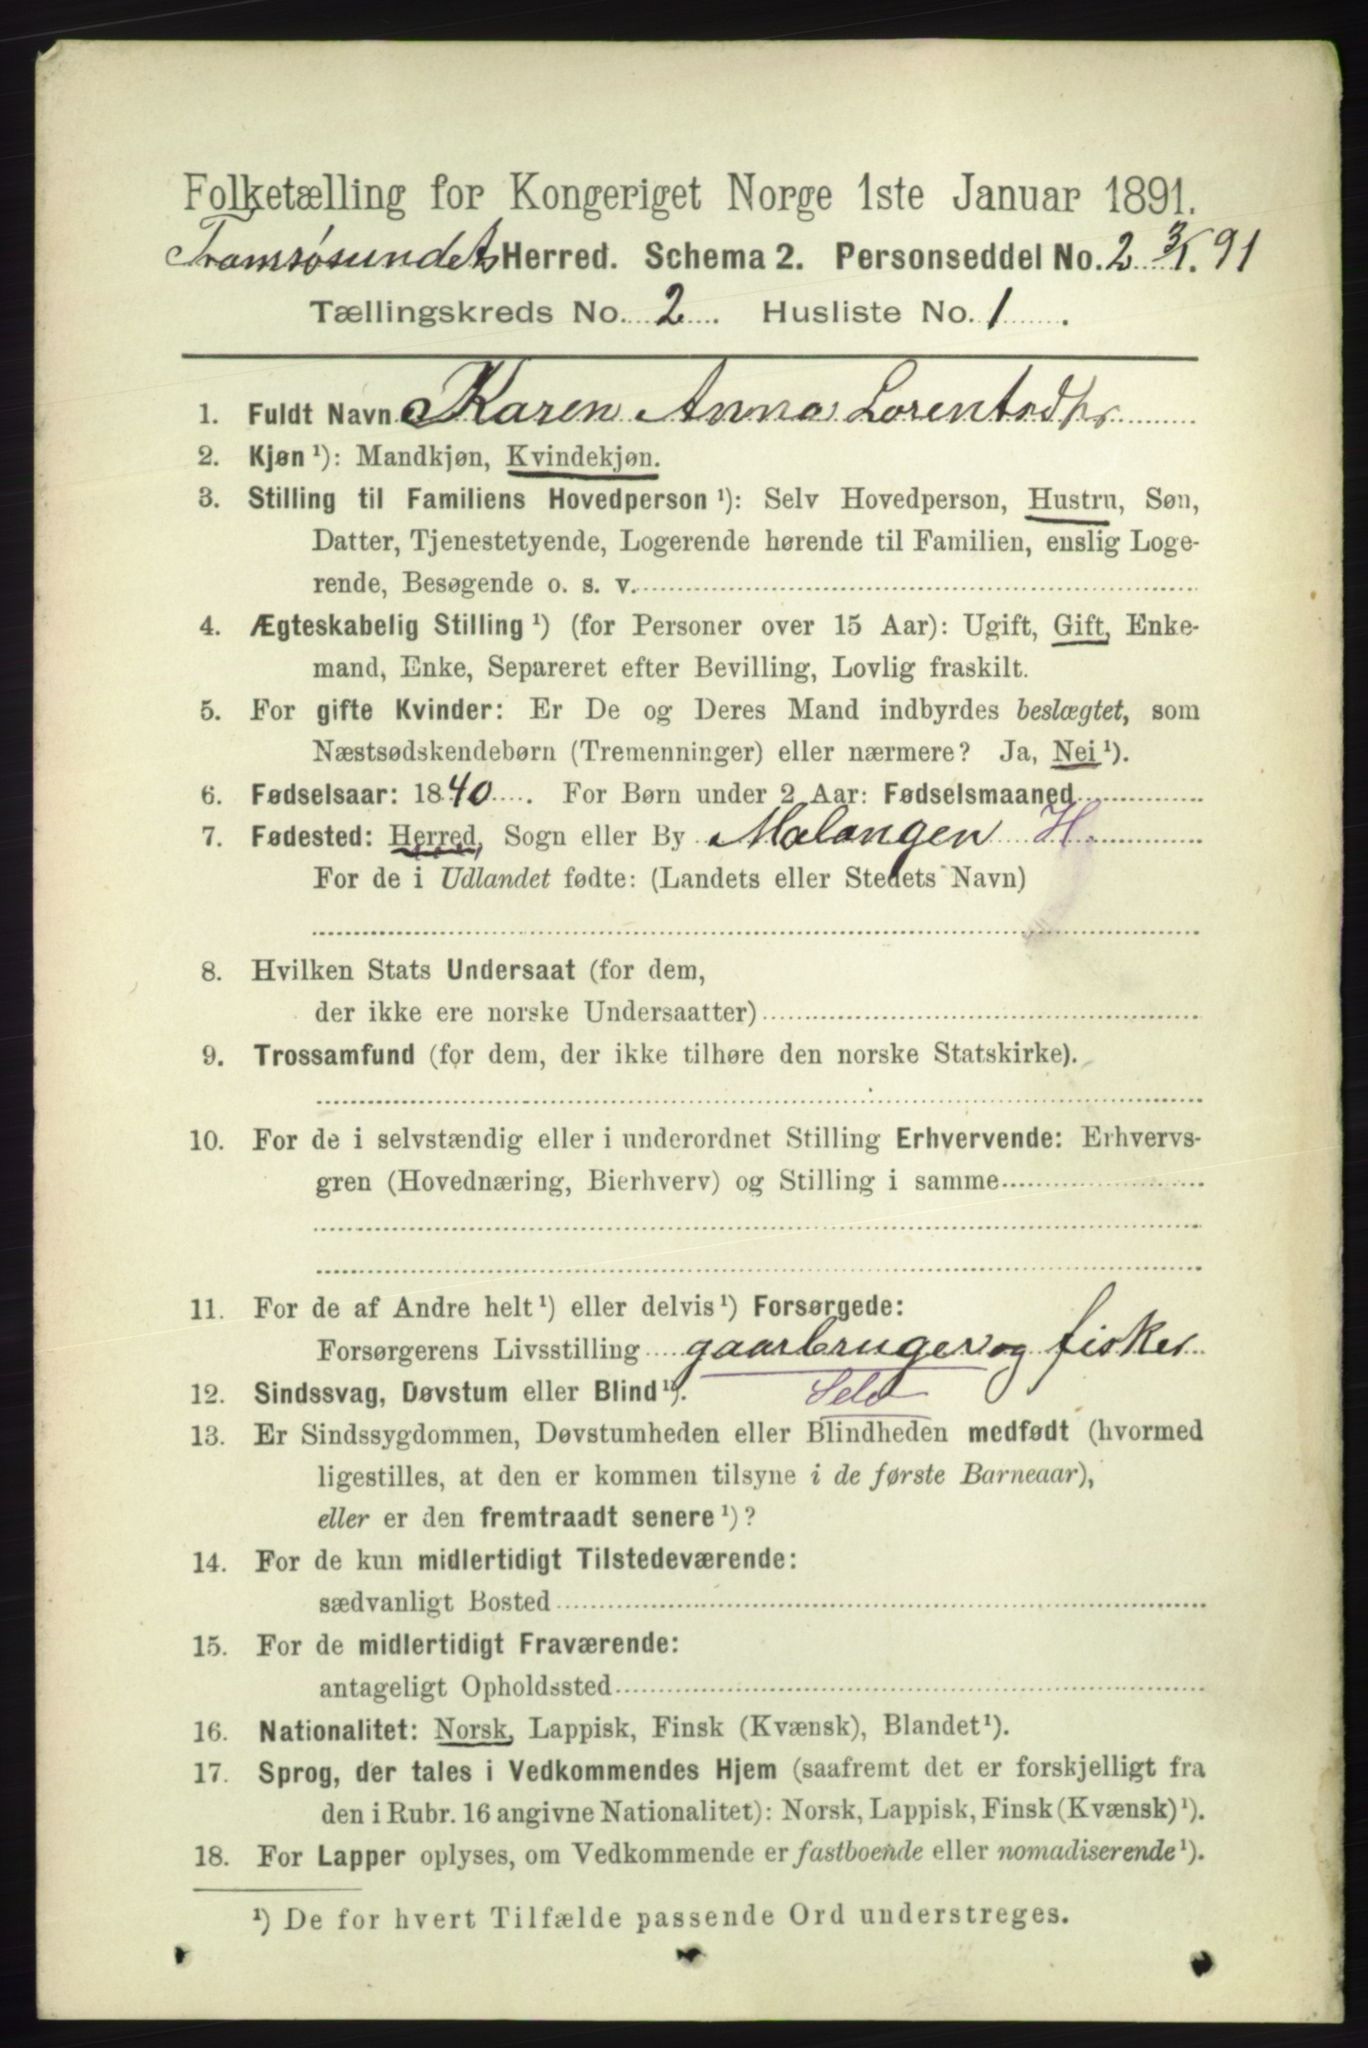 Folketælling for Kongeriget Norge 1ste Januar 1891.
Tromsøsundets Herred. Schema 2. Personseddel No. 2 3/1. 91
Tællingskreds No. 2 Husliste No. 1
1. Fuldt Navn Karen Anna Lorentsdtr
2. Kjøn ¹): Mandkjøn, Kvindekjøn.
3. Stilling til Familiens Hovedperson ¹): Selv Hovedperson, Hustru, Søn,
Datter, Tjenestetyende, Logerende hørende til Familien, enslig Loge-
rende, Besøgende o. s. v.
4. Ægteskabelig Stilling ¹) (for Personer over 15 Aar): Ugift, Gift, Enke-
mand, Enke, Separeret efter Bevilling, Lovlig fraskilt.
5. For gifte Kvinder: Er De og Deres Mand indbyrdes beslægtet, som
Næstsødskendebørn (Tremenninger) eller nærmere? Ja, Nei ¹).
6. Fødselsaar: 1840. For Børn under 2 Aar: Fødselsmaaned
7. Fødested: Herred, Sogn eller By Malangen H.
For de i Udlandet fødte: (Landets eller Stedets Navn)
8. Hvilken Stats Undersaat (for dem,
der ikke ere norske Undersaatter)
9. Trossamfund (for dem, der ikke tilhøre den norske Statskirke).
10. For de i selvstændig eller i underordnet Stilling Erhvervende: Erhvervs-
gren (Hovednæring, Bierhverv) og Stilling i samme
11. For de af Andre helt ¹) eller delvis ¹) Forsørgede:
Forsørgerens Livsstilling gaarbruger og fisker
12. Sindssvag, Døvstum eller Blind ¹). Selv
13. Er Sindssygdommen, Døvstumheden eller Blindheden medfødt (hvormed
ligestilles, at den er kommen tilsyne i de første Barneaar),
eller er den fremtraadt senere ¹)?
14. For de kun midlertidigt Tilstedeværende:
sædvanligt Bosted
15. For de midlertidigt Fraværende:
antageligt Opholdssted
16. Nationalitet: Norsk, Lappisk, Finsk (Kvænsk), Blandet ¹).
17. Sprog, der tales i Vedkommendes Hjem (saafremt det er forskjelligt fra
den i Rubr. 16 angivne Nationalitet): Norsk, Lappisk, Finsk (Kvænsk) ¹).
18. For Lapper oplyses, om Vedkommende er fastboende eller nomadiserende ¹).
¹) De for hvert Tilfælde passende Ord understreges.